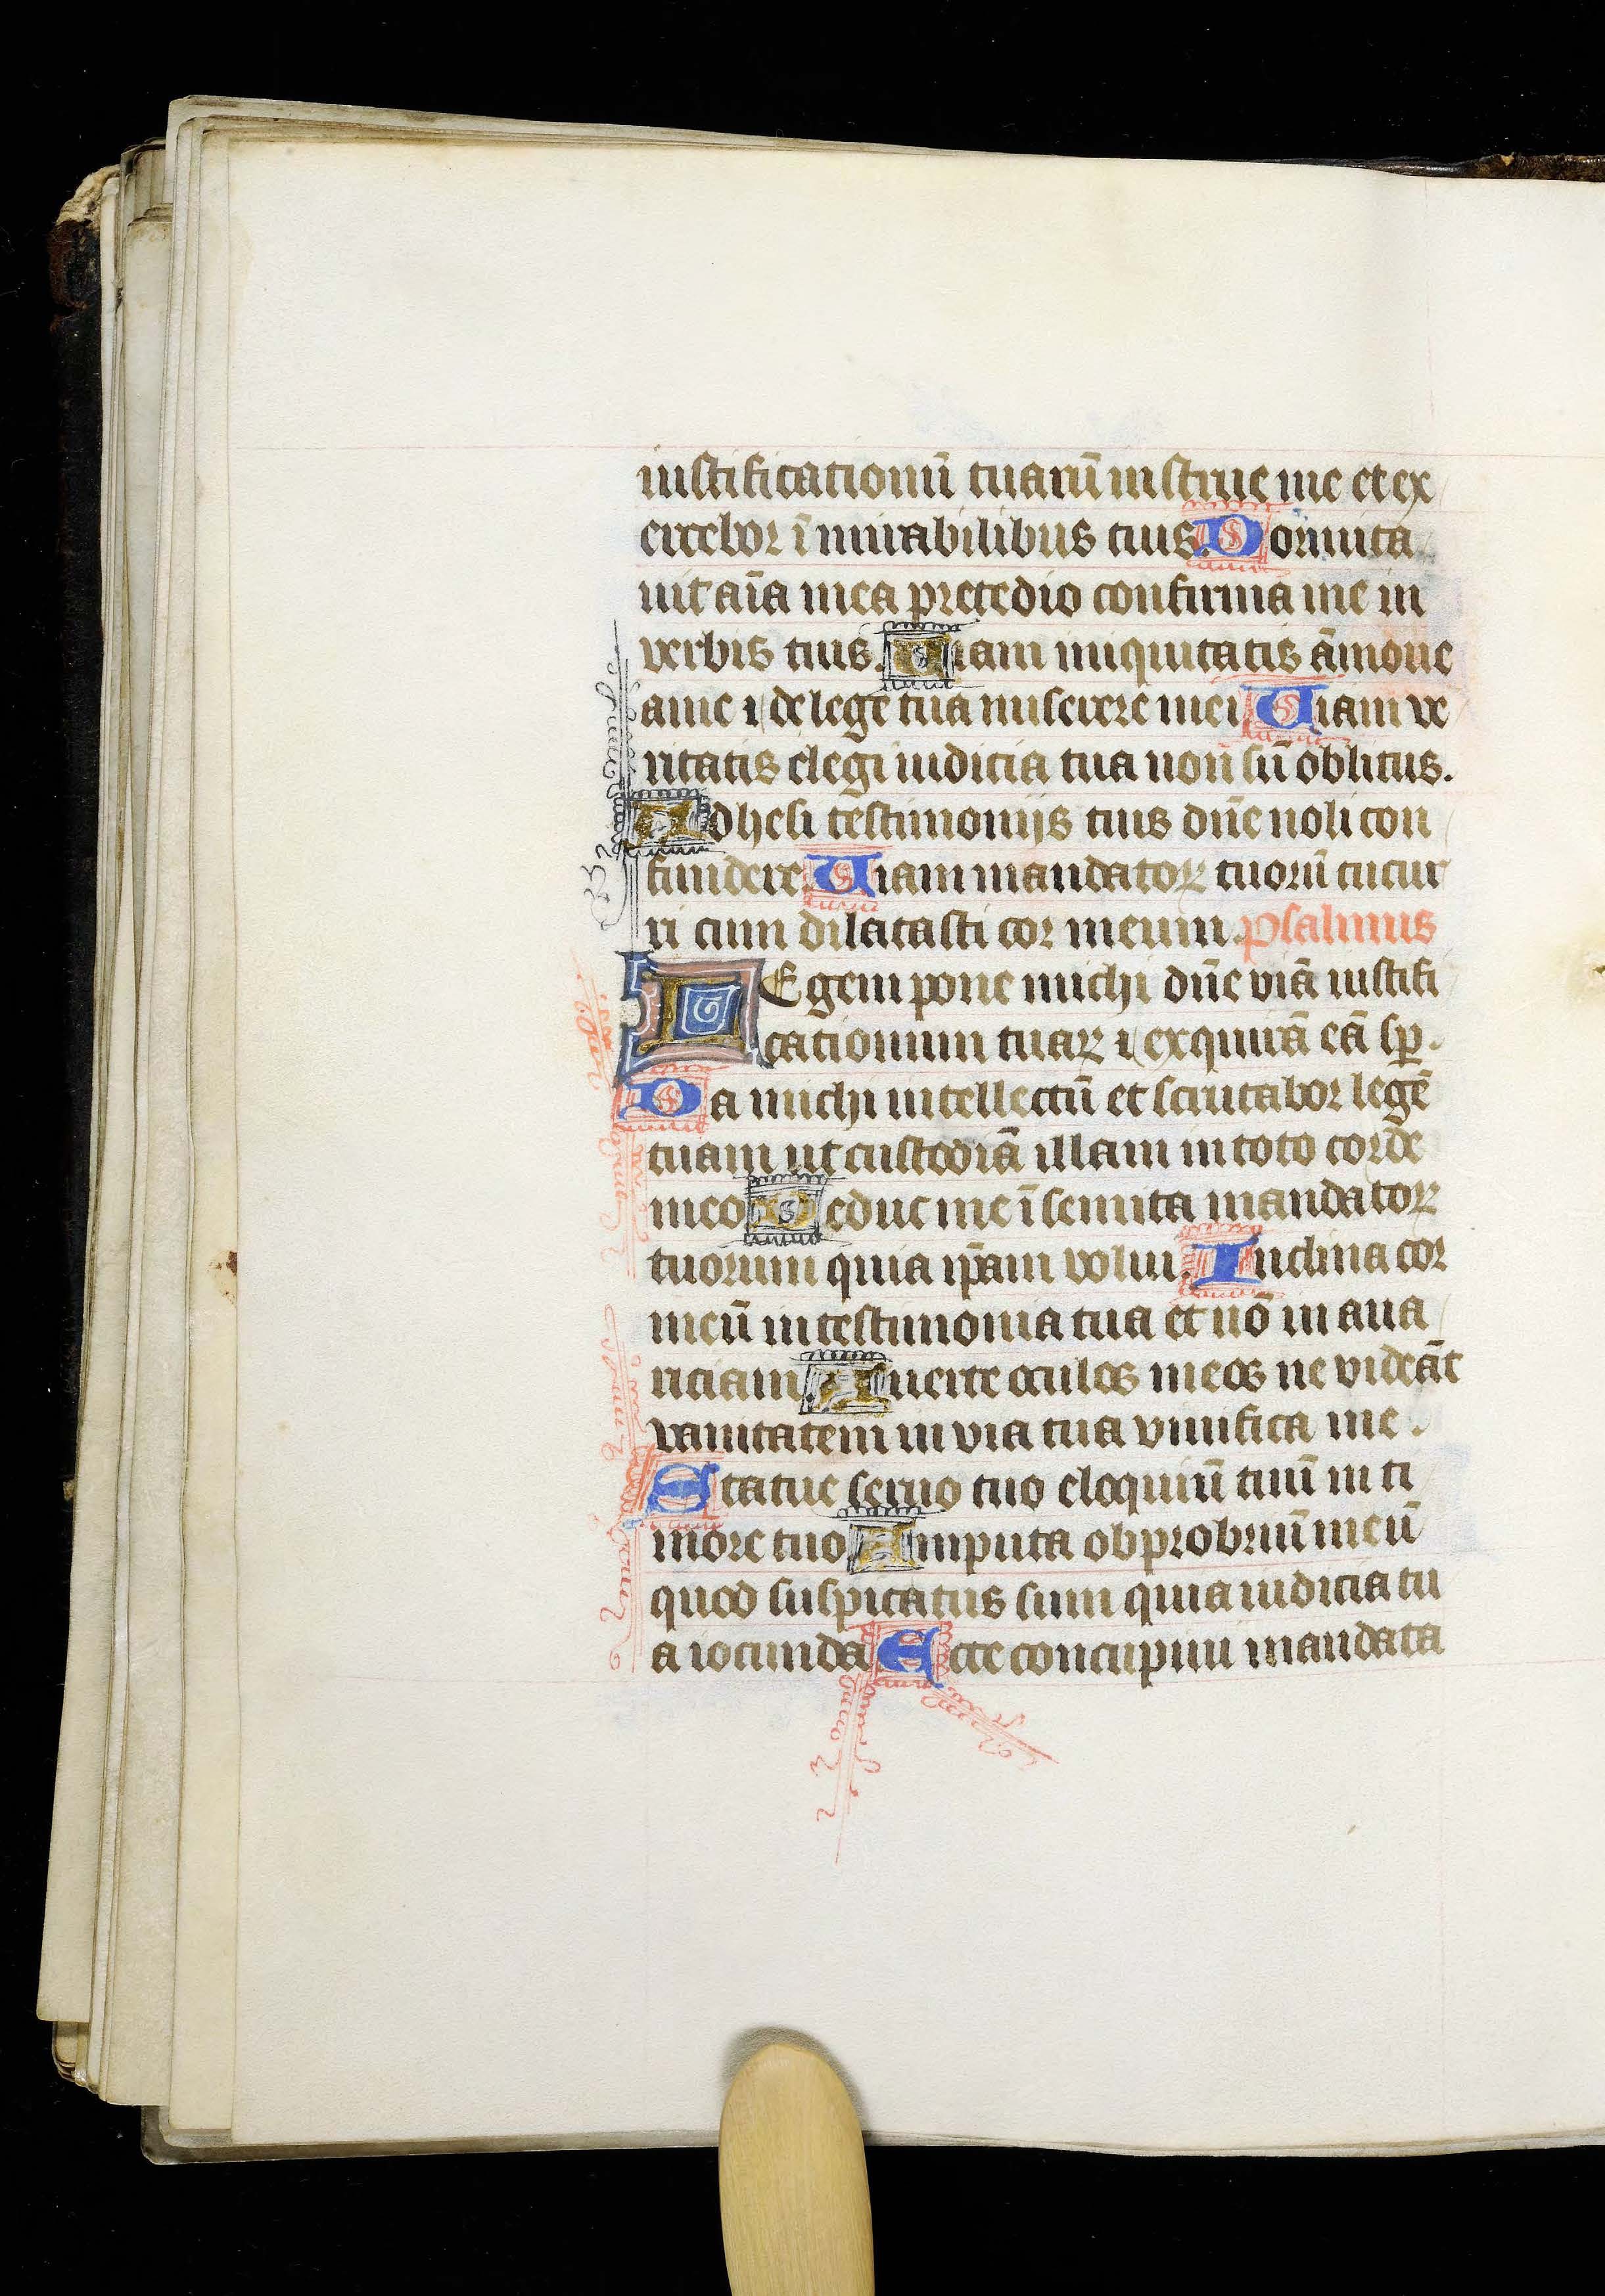 iustificationū tuarū instrue me et ex
ercebor ī mirabilibus tuis. Dormita
uit aīa mea pre tedio confirma me in
verbis tuis. Uiam iniquitatis āmoue
a me ⁊ de lege tua miserere mei Uiam ve
ritatis elegi iudicia tua non sū oblitus.
Adhesi testimonijs tuis dñe noli con
fundere. Uiam mandatoꝝ tuorū cucur
ri cum dilatasti cor meum. Psalmus
LEgem pone michi dñe viā iustifi
cationum tuaꝝ ⁊ exquirā eā sꝑ.
Da michi intellectū et scrutabor legē
tuam ut custodiā illam in toto corde
meo. Deduc me ī semita mandatoꝝ
tuorum quia ip̄am volui. Inclina cor
meū in testimonia tua et nō in aua
riciam. Auerte oculos meos ne videāt
vanitatem in via tua viuifica me.
Statue seruo tuo eloquiū tuū in ti
more tuo Amputa obprobriū meū
quod suspicatus sum quia iudicia tu
a iocunda Ecce concupiui mandata